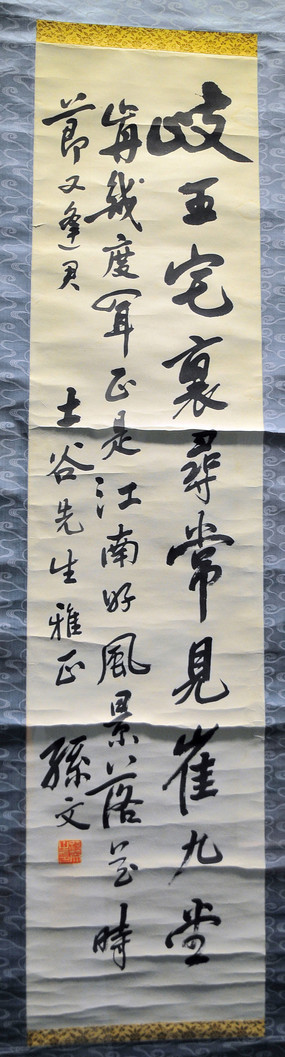 岐王宅裏尋常見崔九堂
前幾度聞正是江南好風景落花時
節又逢君
土谷先生雅正
孫文